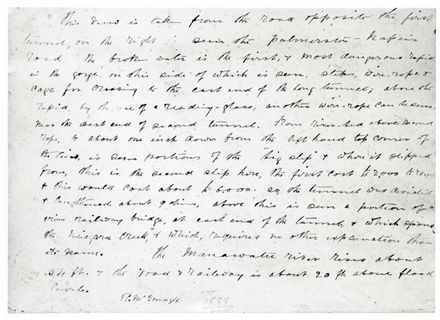 This view is taken from the road opposite the first
tunnel, on the right is seen the Palmerston - Napier
Road. The broken water is the first, & most dangerous rapid
in the gorge, on this side of which is seen, stakes, wire-rope &
cage for crossing to the east end of the long tunnel; above the
rapid by the use of a reading-glass, another wire-rope can be seen
near the west end of second tunnel. From river-bed above second
rope, to about one inch down from the left hand top corner of
the view, is seen portions of the big slip & where it slipped
from, this is the second slip here, the first cost £2000 to
& this would cost about £6000. so the tunnel was
& lengthened about 9 chns, above this is seen a portion of
iron railway bridge, at east end of the tunnel, & which spans
the Niagara Creek, & which, requires no other explanation than
its name. The Manawatu river rises about
ft. & the road & railway is about 20 ft above flood
levels.
1888